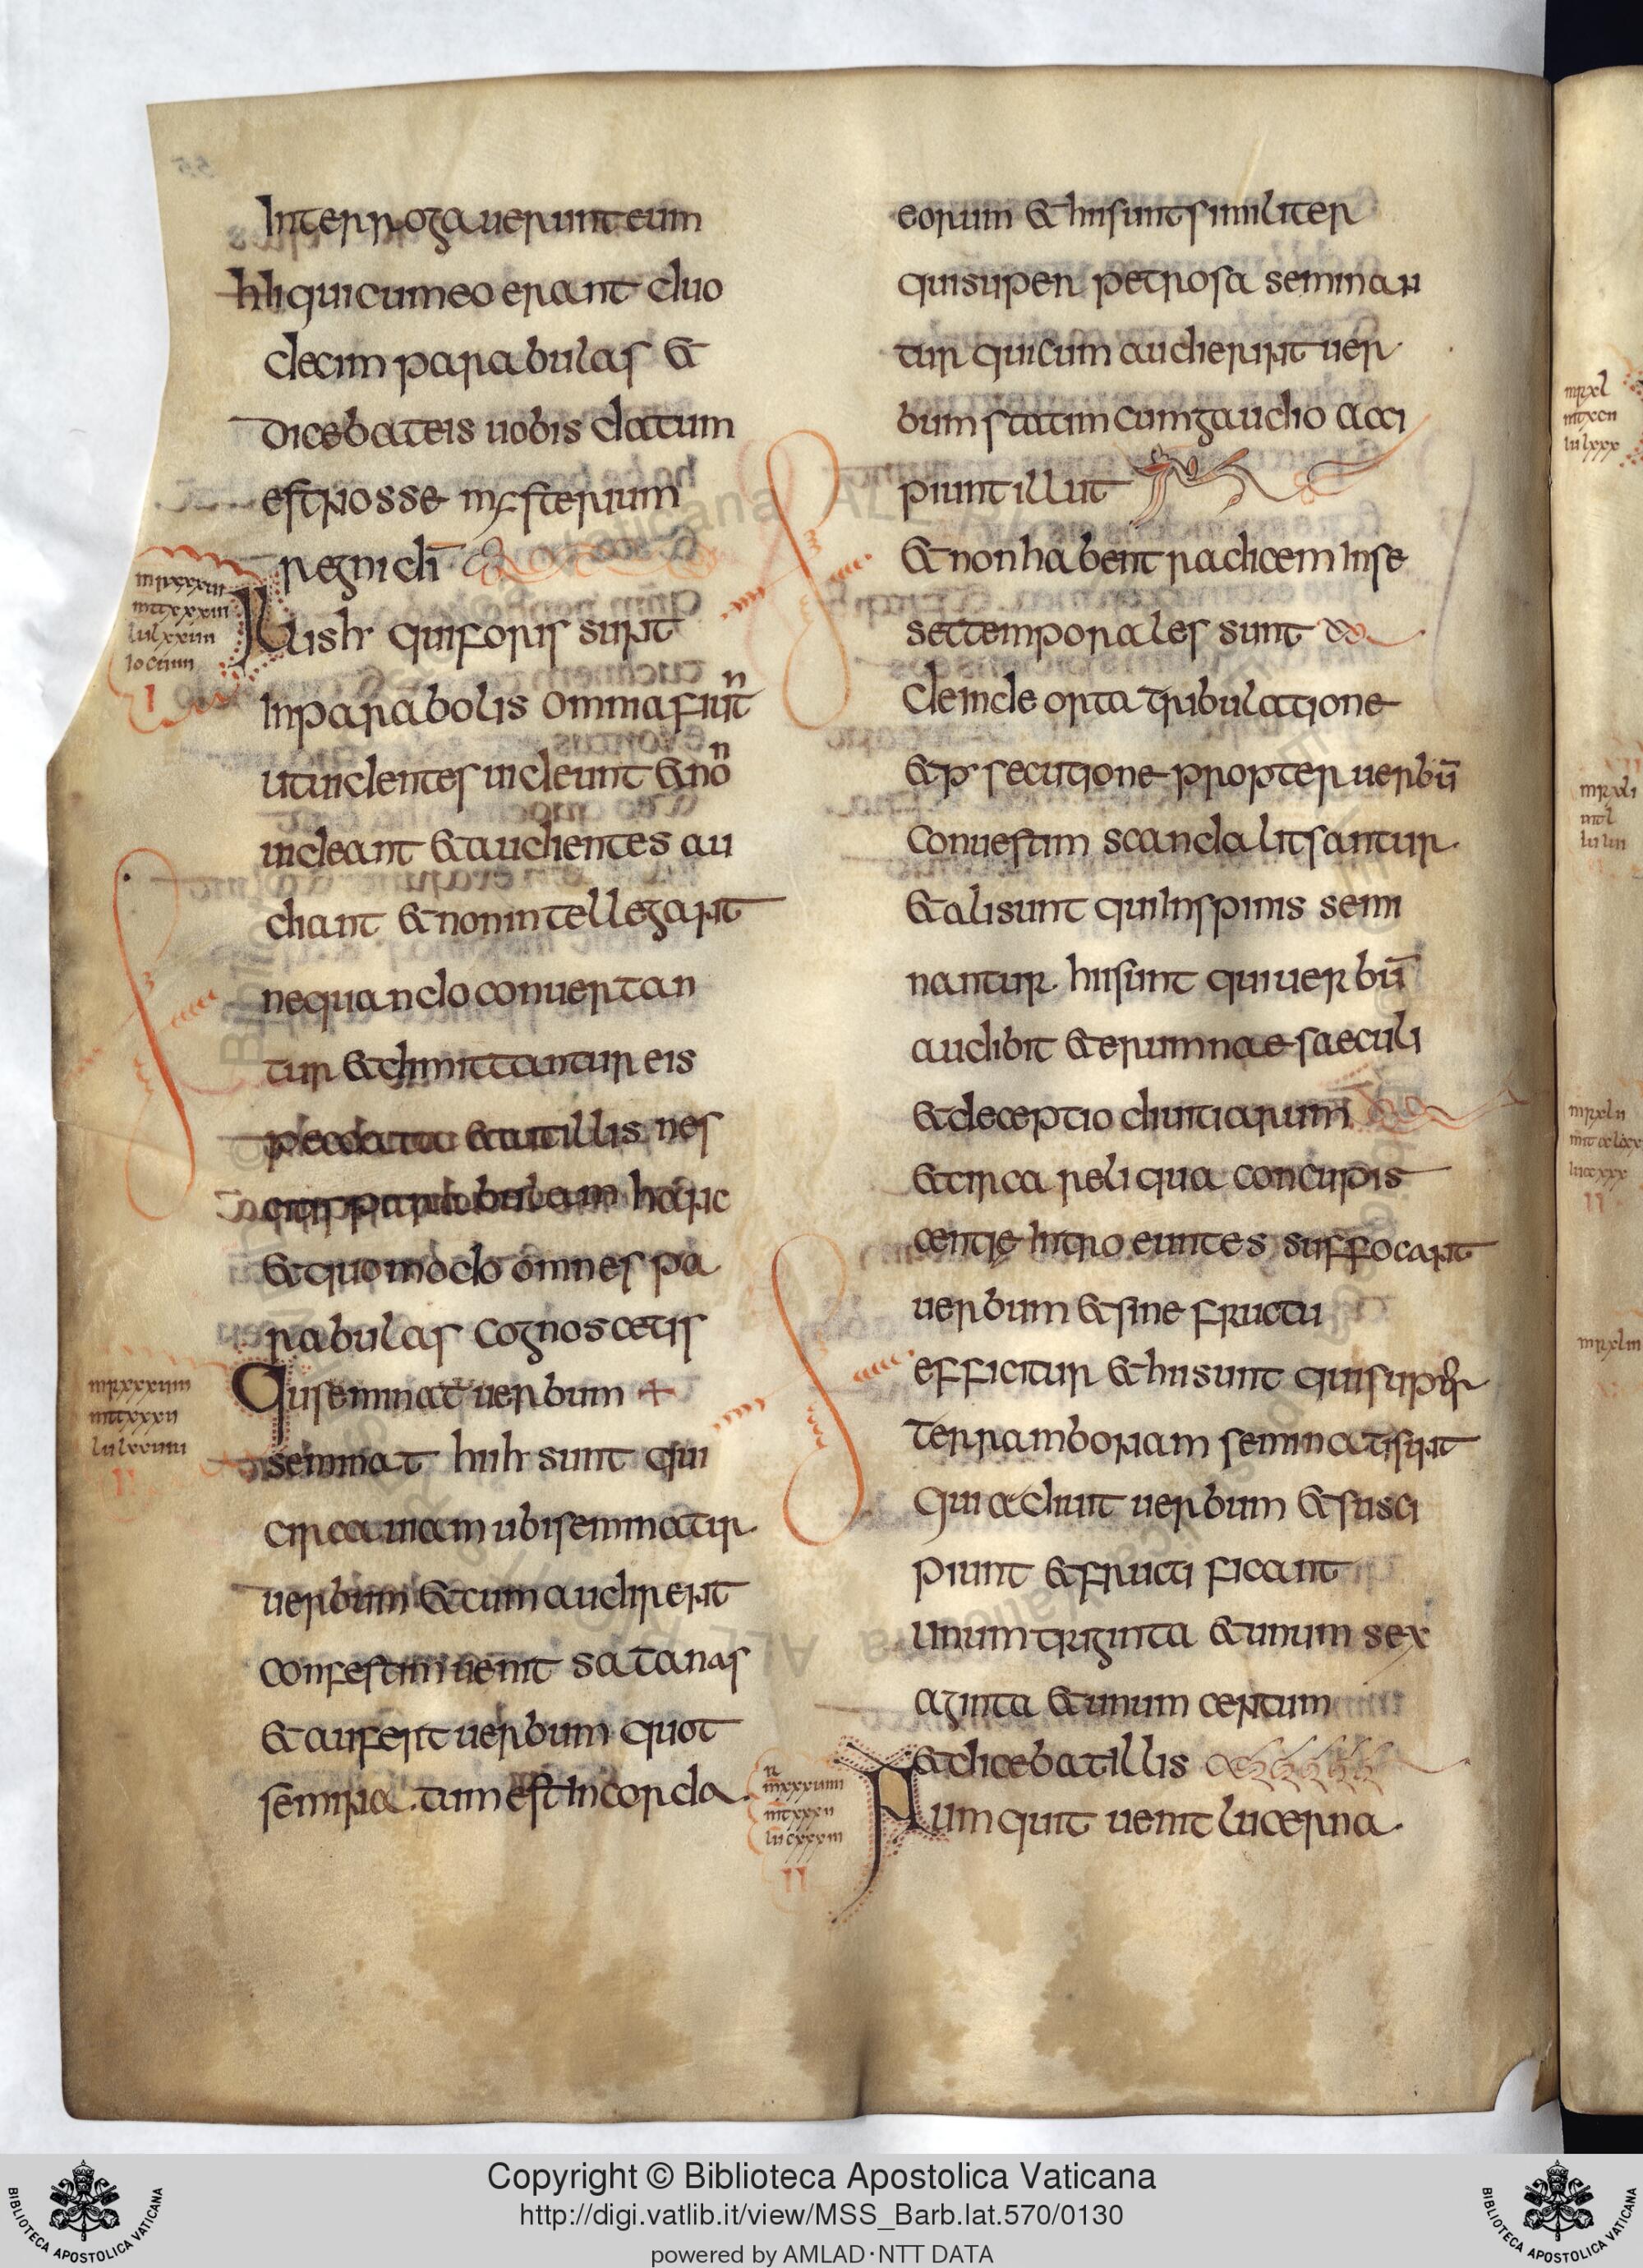 Interrogauerunt eum
hli qui cum eo erant duo
decim parabulas &
dicebat eis uobis datum
est nosse mysterium
regni di
illis h qui foris sunt
In parabolis omnia fiunt
ut uidentes uideunt & non
uideant & audientes au
diant & non intellegant
ne quando conuertan
tur & dimittantur eis
peccata & ait illis nes
citis parabulam hanc
& quomodo omnes pa
rabulas cognoscetis
Qui seminat uerbum +
seminat hii h sunt qui
circa uiam ubi seminatur
uerbum & cum audirent
confestim uenit satanas
& aufert uerbum quot
seminatum est in corda
mrxxxuiii
mtxxxii
lulxxuiiii
eorum & hii sunt similiter
qui super petrosa seminan
tur qui cum audierint uer
bum statim cum gaudio acci
piunt illut
& non habent radicem In se
set temporales sunt
deinde orta tribulatione
& persecutione propter uerbū
confestim scandalitsantur
& ali sunt qui In spinis semi
nantur hii sunt qui uerbū
audibit & erumnae saeculi
& deceptio diuitiarum
& circa reliqua concupis
centię Introeuntes suffocant
uerbum & sine fructu
efficitur & hii sunt qui super
terram bonam seminati sunt
qui adiuit uerbum & susci
piunt & fructificant
unum triginta & unum sex
aginta & unum centum
& dicebat illis
Numquit uenit lucerna
II
mrxl
lulxxx
mrxli
mtl
mrxlii
II
mrxliii
Copyright © Biblioteca Apostolica Vaticana
http://digi.vatlib.it/view/MSS_Barb.lat.570/0130
powered by AMLAD·NTT DATA
BIBLIOTECA APOSTOLICA VATICANA
BIBLIOTECA APOSTOLICA VATICANA